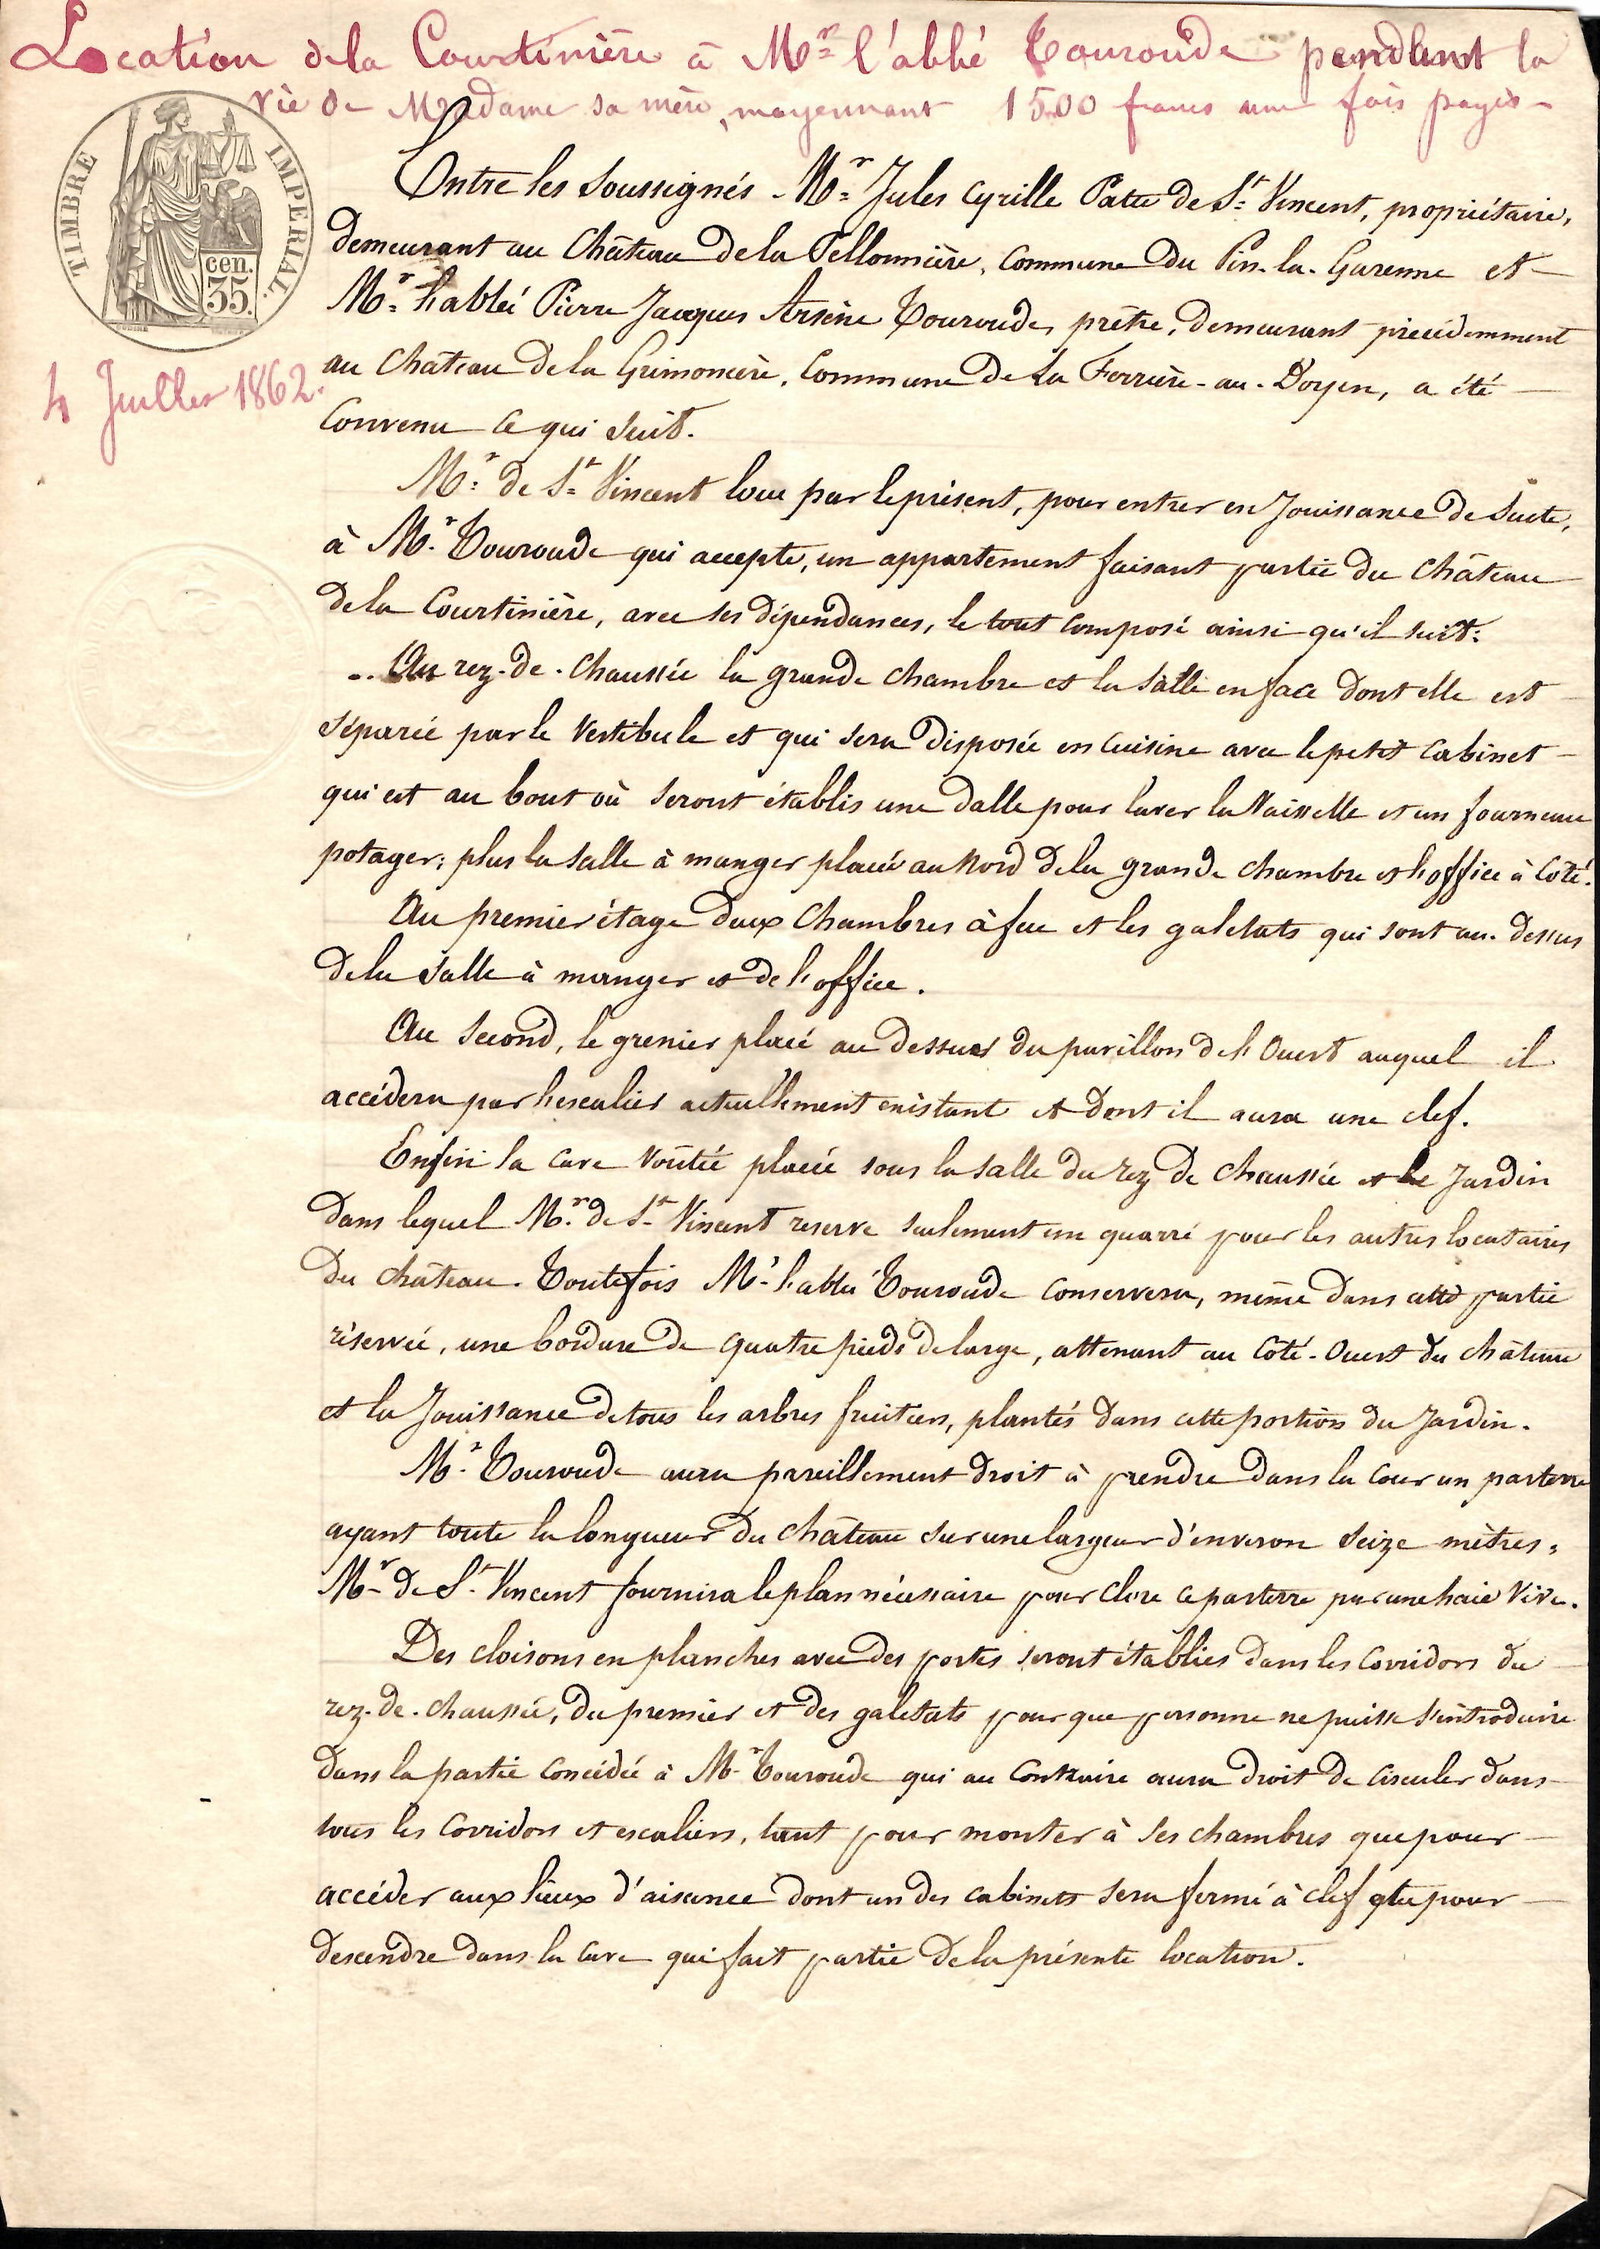 Location de la Courtinière à Mr l'abbé Touroude pendant la
vie de Madame sa mère, moyennant 1500 francs une fois payés
TIMBRE IMPERIAL.
cen.
35.
4 Juillet 1862.
Entre les soussignés Mr Jules Cyrille Patu de St Vincent, propriétaire,
demeurant au Château de la Pellonnière, commune du Pin-la-Garenne et
Mr l'abbé Pierre Jacques Arsène Touroude, prêtre, demeurant précédemment
au Château de la Grimonière, Commune de La Ferrière-au-Doyen, a été
convenu ce qui suit.
Mr de St Vincent loue par le présent, pour entrer en jouissance de suite,
à Mr Touroude qui accepte, un appartement faisant partie du Château
de la Courtinière, avec ses dépendances, le tout composé ainsi qu'il suit:
Au rez-de-chaussée la grande chambre et la salle en face dont elle est
séparée par le vestibule et qui sera disposée en cuisine avec le petit cabinet
qui est au bout où seront établis une dalle pour laver la vaisselle et un fourneau
potager; plus la salle à manger placée au Nord de la grande chambre et l'office à côté.
Au premier étage deux chambres à feu et les galetats qui sont au-dessus
de la salle à manger et de l'office.
Au second, le grenier placé au dessus du pavillon de l'Ouest auquel il
accédera par l'escalier actuellement existant et dont il aura une clef.
Enfin la cave voûtée placée sous la salle du rez de chaussée et le Jardin
dans lequel Mr de St Vincent reserve seulement un quarré pour les autres locataires
du château. Toutefois Mr l'abbé Touroude conservera, même dans cette partie
réservée, une bordure de quatre pieds de large, attenant au côté-Ouest du château
et la Jouissance de tous les arbres fruitiers, plantés dans cette portion du Jardin.
Mr Touroude aura pareillement droit à prendre dans la cour un parterre
ayant toute la longueur du château sur une largeur d'environ seize mètres.
Mr de St Vincent fournira le plan nécessaire pour clore ce parterre par une haie vive.
Des cloisons en planches avec des portes seront établies dans les corridors du
rez-de-chaussée, du premier et des galetats pour que personne ne puisse s'introduire
dans la partie concédée à Mr Touroude qui au contraire aura droit de circuler dans
tous les corridors et escaliers, tant pour monter à ses chambres que pour
accéder aux lieux d'aisance dont un des cabinets sera fermé à clef que pour
descendre dans la cave qui fait partie de la présente location.